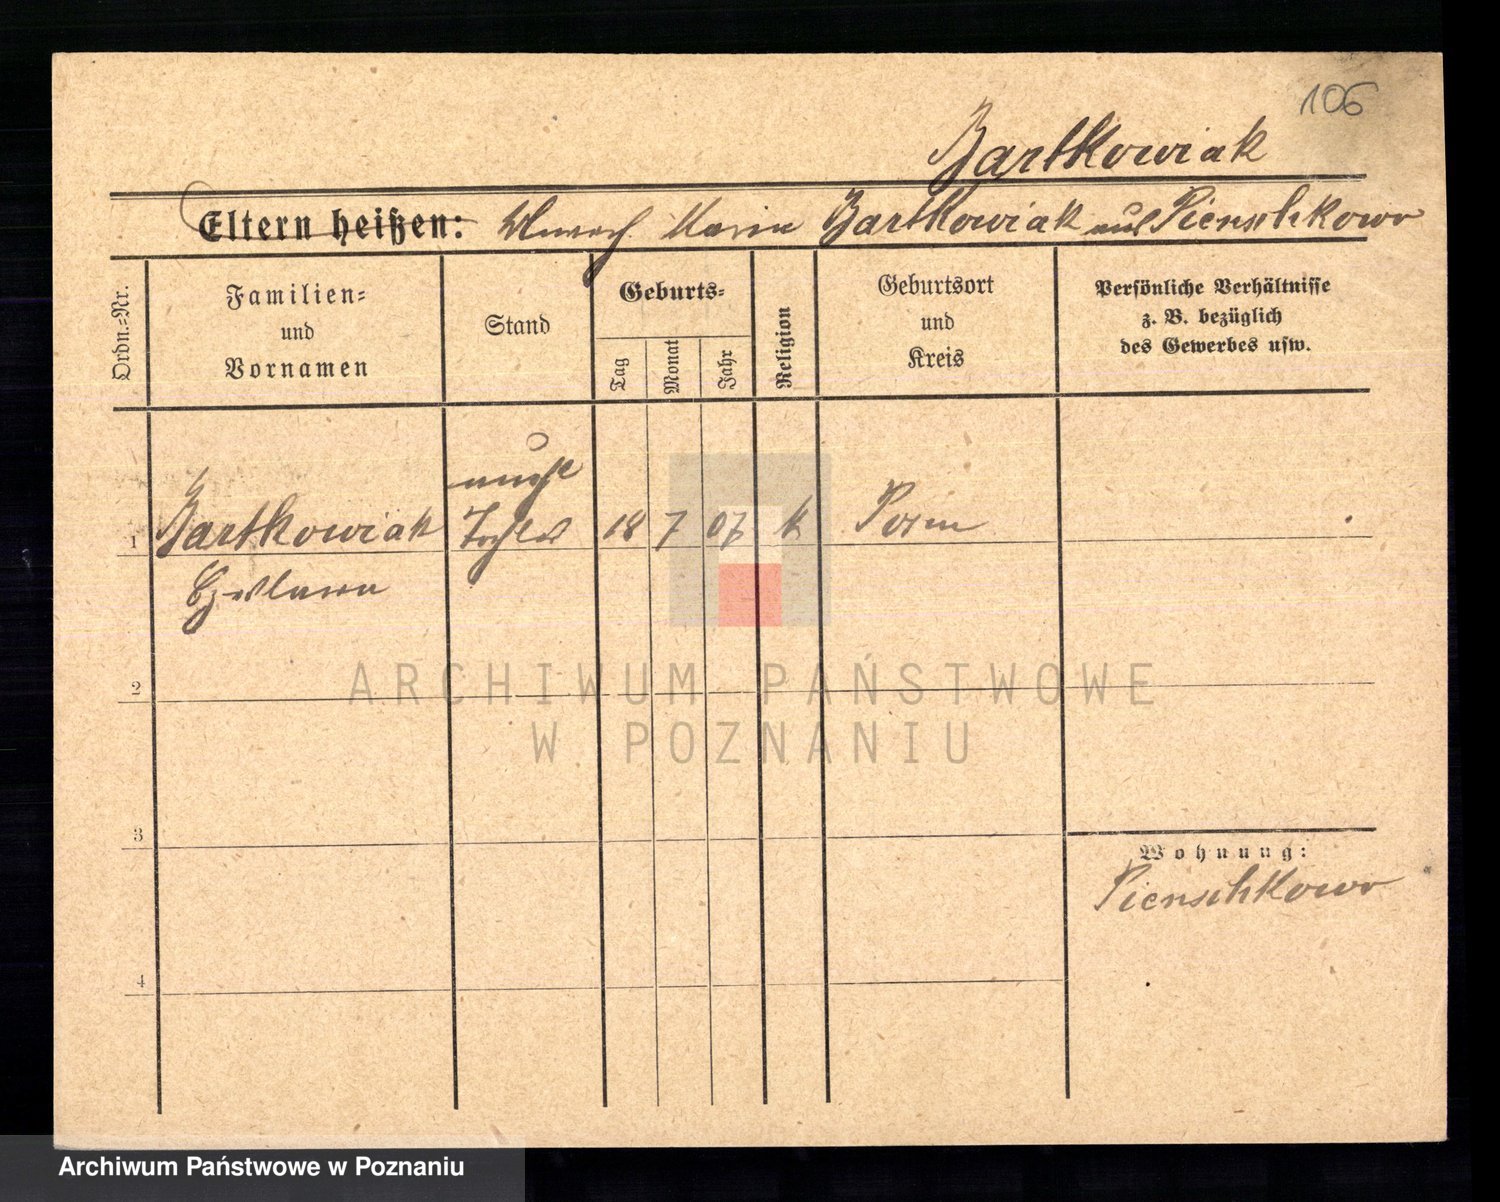 106
Bartkowiak
Eltern heißen: Marie Bartkowiak aus Pienschkowo
Ordn.-Nr.
Familien-
und
Vornamen
Stand
Geburts-
Tag
Monat
Jahr
Religion
Geburtsort
und
Kreis
Persönliche Verhältnisse
z. B. bezüglich
des Gewerbes usw.
1 Bartkowiak Tochter 18 7 07 k Posen
2
3
Wohnung:
Pienschkowo
4
ARCHIWUM PAŃSTWOWE
W POZNANIU
Archiwum Państwowe w Poznaniu